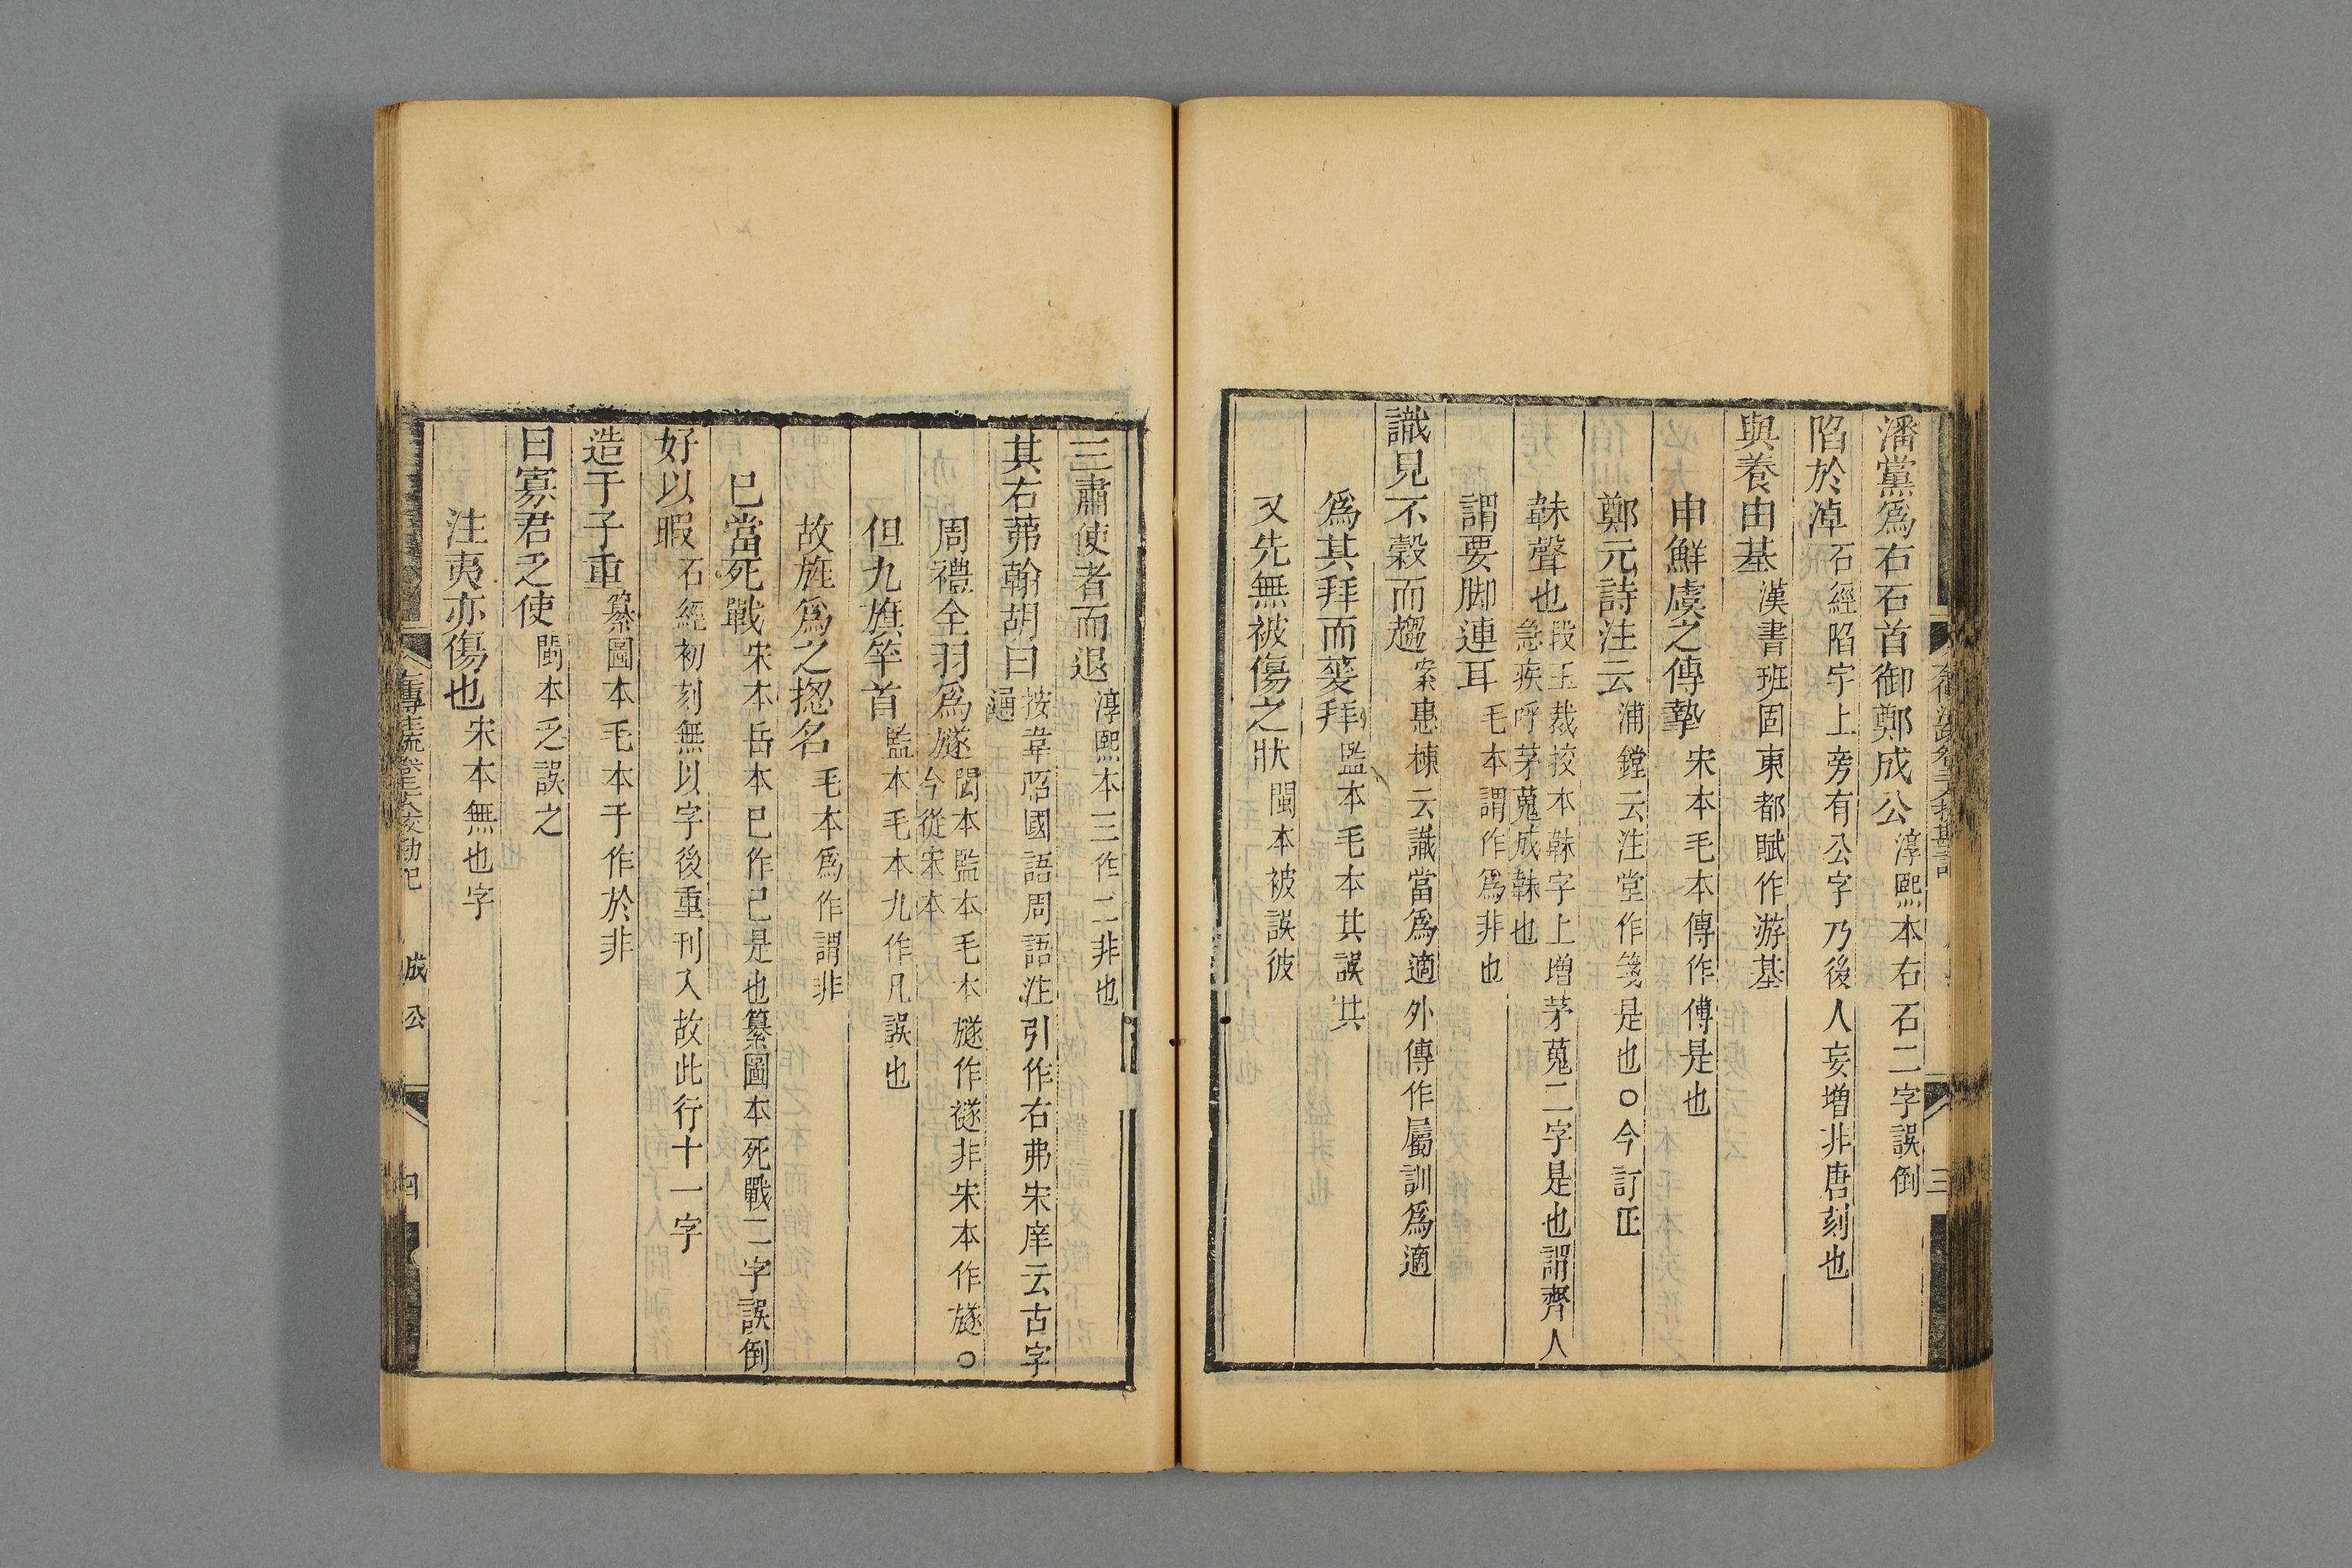 潘黨爲右石首御鄭成公淳熙本右石二字誤倒
陷於淖石經陷字上旁有公字乃後人妄增非唐刻也
與養由基漢書班固東都賦作游基
申鮮虞之傳摯宋本毛本傳作傅是也
鄭元詩注云浦鏜云注堂作箋是也○今訂正
韎聲也段玉裁挍本韎字上增茅蒐二字是也謂齊人急疾呼茅蒐成韎也
謂要脚連耳毛本謂作爲非也
識見不穀而趨案惠棟云識當爲適外傳作屬訓爲適
爲其拜而蓌拜監本毛本其誤其
又先無被傷之狀閩本被誤彼
三
三肅使者而退淳熙本三作二非也
其右茀翰胡曰按韋昭國語周語注引作右弗宋庠云古字通
周禮全羽爲旞閩本監本毛本旞作襚非宋本作旞○今從宋本
但九旗竿首監本毛本九作凡誤也
故旌爲之揔名毛本爲作謂非
已當死戰宋本岳本已作己是也纂圖本死戰二字誤倒
好以暇石經初刻無以字後重刊入故此行十一字
造于子重纂圖本毛本于作於非
曰寡君之使閩本乏誤之
注夷亦傷也宋本無也字
成公
四